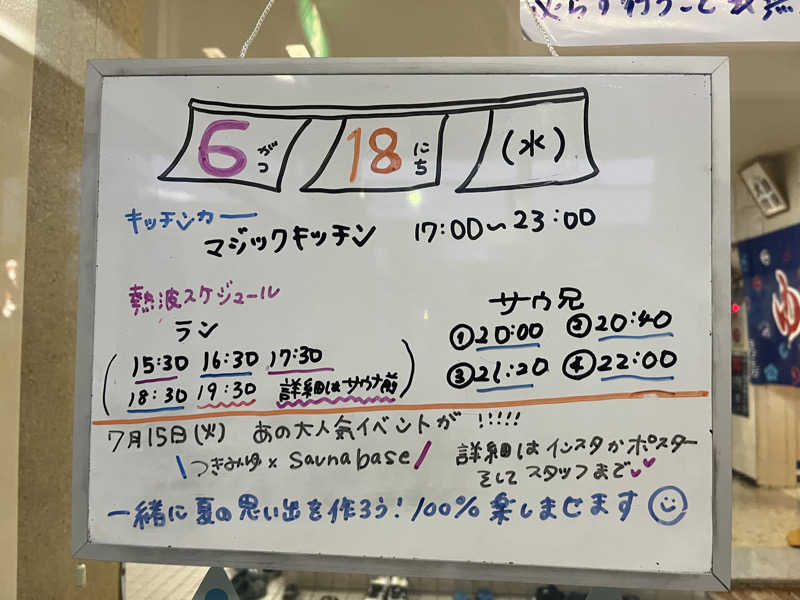 必らず行うこと
6がつ 18にち (水)
キッチンカー
マジックキッチン 17:00~23:00
熱波スケジュール
ラン
(15:30 16:30 17:30
18:30 19:30 詳細はサウナ前)
サウ兄
①20:00 ②20:40
③21:20 ④22:00
7月15日(火) あの大人気イベントが !!!!!
\つきみゆ × Saunabase/
詳細はインスタかポスター
そしてスタッフまで♥♥
一緒に夏の思い出を作ろう! 100% 楽しませます ☺
ゆ